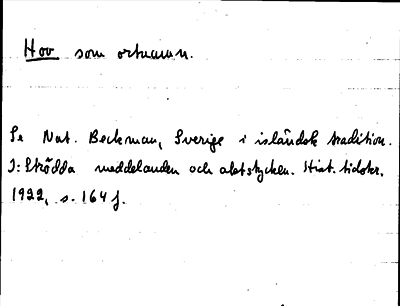 Hov som ortnamn.
Se Nat. Beckman, Sverige i isländsk tradition.
I: Strödda meddelanden och aktstycken. Hist. tidskr.
1922, s. 164 f.